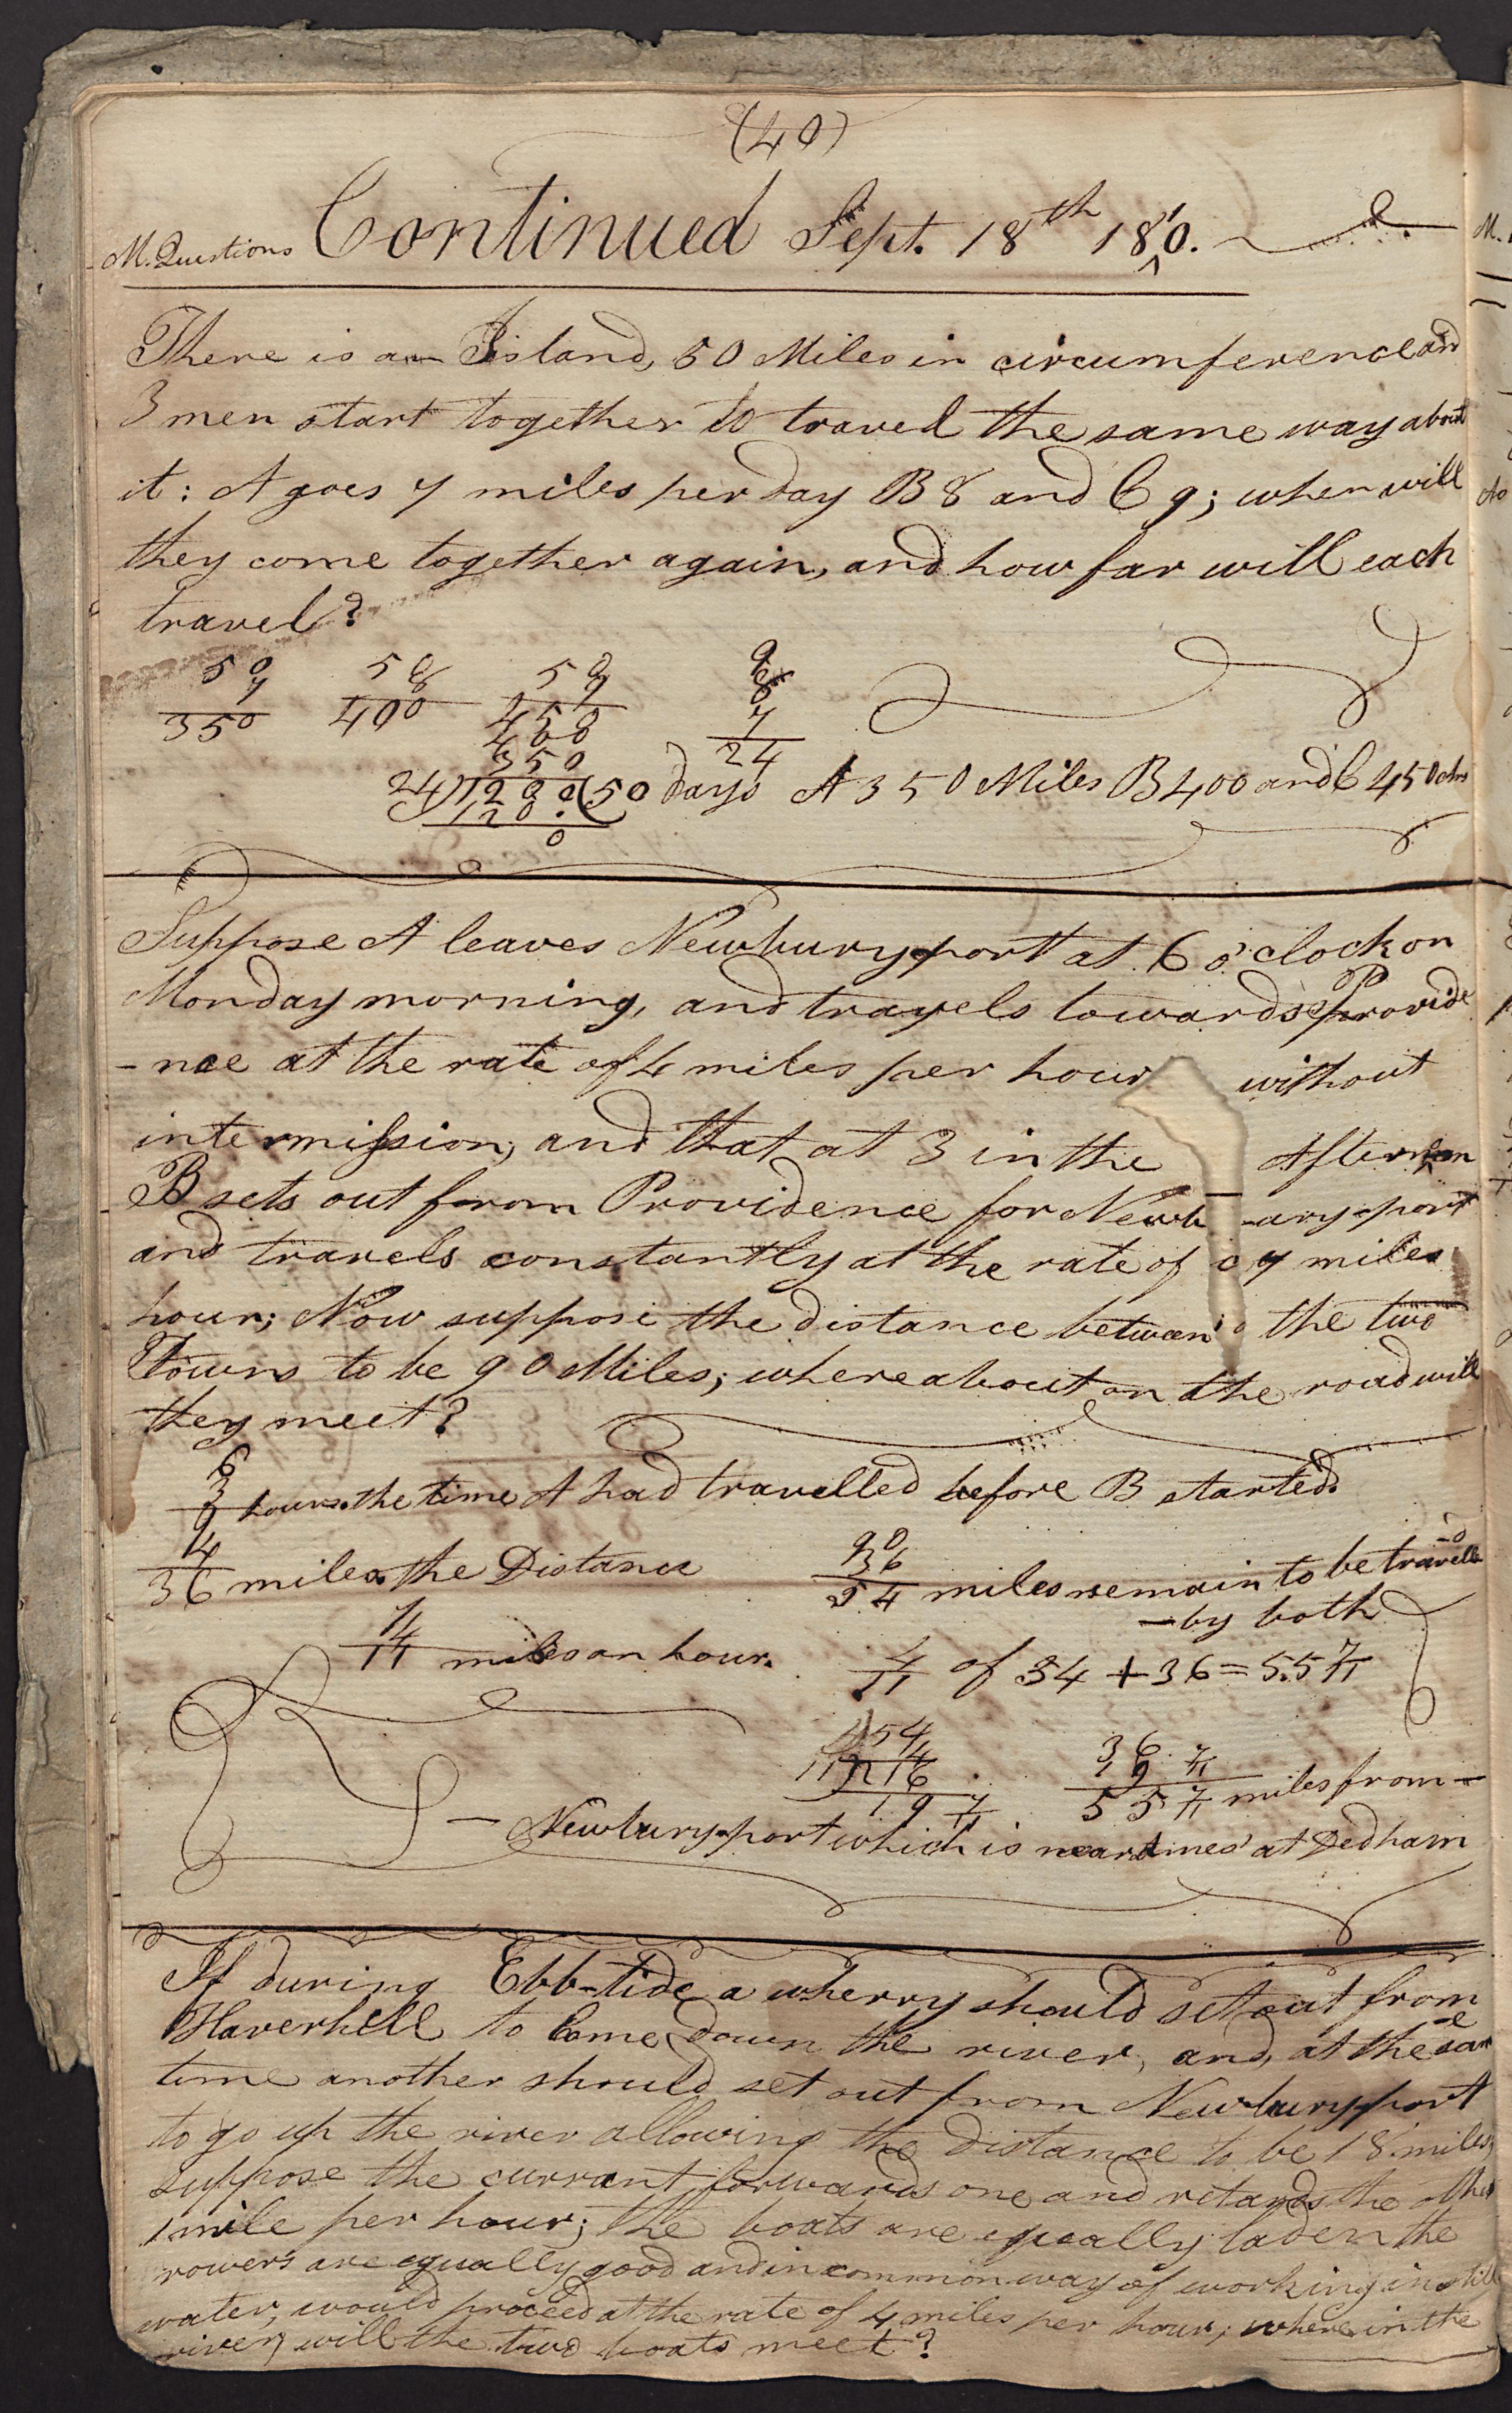 (40)
M. Questions Continued Sept. 18th 1810.
There is an Island, 50 Miles in circumference and
3 men start together to travel the same way about
it: A goes 7 miles per day B 8 and C 9; when will
they come together again, and how far will each
travel?
50 50 50 9
7 8 9 8
350 400 450 7
400 24
350
24)1200(50 days A 350 Miles B 400 and C 450 Ans
120
0
Suppose A leaves Newburyport at 6 o'clock on
Monday morning, and travels towards Provide
-nce at the rate of 4 miles per hour without
intermission, and that at 3 in the Afternon
B sets out from Providence for Newb -ury-port
and travels constantly at the rate of 7 miles
hour; Now suppose the distance between the two
Towns to be 90 Miles; whereabout on the road will
they meet?
6
3
9 hours. the time A had travelled before B started.
4
36 miles the Distance
90
36
54 miles remain to be travelle -d
-by both
7
4
11 miles an hour.
4/11 of 54 + 36 = 55 7/11
54
4
11)216
19 7/11
36
19 7/11
55 7/11 miles from-
- Newburyport which is at Dedham
If during Ebb-tide a wherry should set out from
Haverhell to Come down the river, and, at the sam -e
time another should set out from Newburyport
to go up the river allowing the Distance to be 18 miles,
suppose the currant forwards one and retards the other
1 mile per hour; the boats are equally laden the
rowers are equally good and in common way of working in still
water, would proceed at the rate of 4 miles per hour; where in the
river, will the two boats meet?